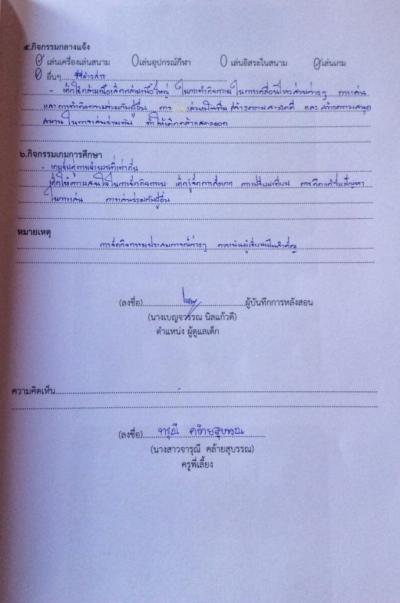 ๕.กิจกรรมกลางแจ้ง
เล่นเครื่องเล่นสนาม เล่นอุปกรณ์กีฬา เล่นอิสระในสนาม เล่นเกม
อื่นๆ
- เด็กใช้กล้ามเนื้อเล็กกล้ามเนื้อใหญ่ ในการทำกิจกรรม ในการเคลื่อนไหวส่วนต่างๆ การเล่น
และการทำกิจกรรมร่วมกับผู้อื่น การ เล่นเป็นทีม สร้างความสามัคคี และ สร้างความสนุก
สนาน ในการเล่นร่วมกัน ทำให้เด็กกล้าแสดงออก
๖.กิจกรรมเกมการศึกษา
- เกม
เด็กให้ความสนใจในการทำกิจกรรม เด็กรู้จักการสังเกต การเปรียบเทียบ การคิดแก้ไขปัญหา
ในการเล่น การเล่นร่วมกับผู้อื่น
หมายเหตุ
การจัดกิจกรรมประสบการณ์ต่างๆ
(ลงชื่อ) ผู้บันทึกการหลังสอน
(นางเบญจวรรณ นิลแก้วดี)
ตำแหน่ง ผู้ดูแลเด็ก
ความคิดเห็น
(ลงชื่อ) จารุณี คล้ายสุบรรณ
(นางสาวจารุณี คล้ายสุบรรณ)
ครูพี่เลี้ยง